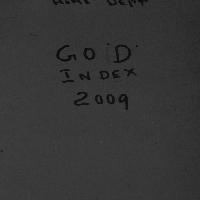 GO D
INDEX
2009